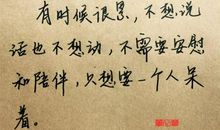 有时候很累，不想说
话也不想动，不需要安慰
和陪伴，只想要一个人呆
着。